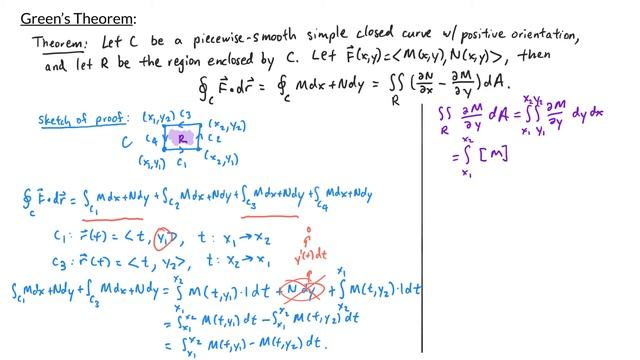 Green's Theorem:
Theorem: Let C be a piecewise-smooth simple closed curve w/ positive orientation,
and let R be the region enclosed by C. Let F⃗(x,y)=<M(x,y),N(x,y)>, then
∮_C F⃗•dr⃗ = ∮_C Mdx+Ndy = ∬_R (∂N/∂x - ∂M/∂y)dA.
sketch of proof:
(x₁,y₂) C3
(x₂,y₂)
C C4 R C2
(x₁,y₁) C₁ (x₂,y₁)
∮_C F⃗•dr⃗ = ∫_C₁ Mdx+Ndy + ∫_C2 Mdx+Ndy + ∫_C3 Mdx+Ndy + ∫_C4 Mdx+Ndy
C₁: r⃗(t) = <t, y₁>, t: x₁→x₂
C3: r⃗(t) = <t, y₂>, t: x₂→x₁
0
y'(t)dt
∫_C₁ Mdx+Ndy + ∫_C3 Mdx+Ndy = ∫_x₁^x₂ M(t,y₁)·1dt + Ndy + ∫_x₂^x₁ M(t,y₂)·1dt
= ∫_x₁^x₂ M(t,y₁)dt - ∫_x₁^x₂ M(t,y₂)dt
= ∫_x₁^x₂ M(t,y₁) - M(t,y₂)dt.
∬_R ∂M/∂y dA = ∫_x₁^x₂ ∫_y₁^y₂ ∂M/∂y dy dx
= ∫_x₁^x₂ [M]